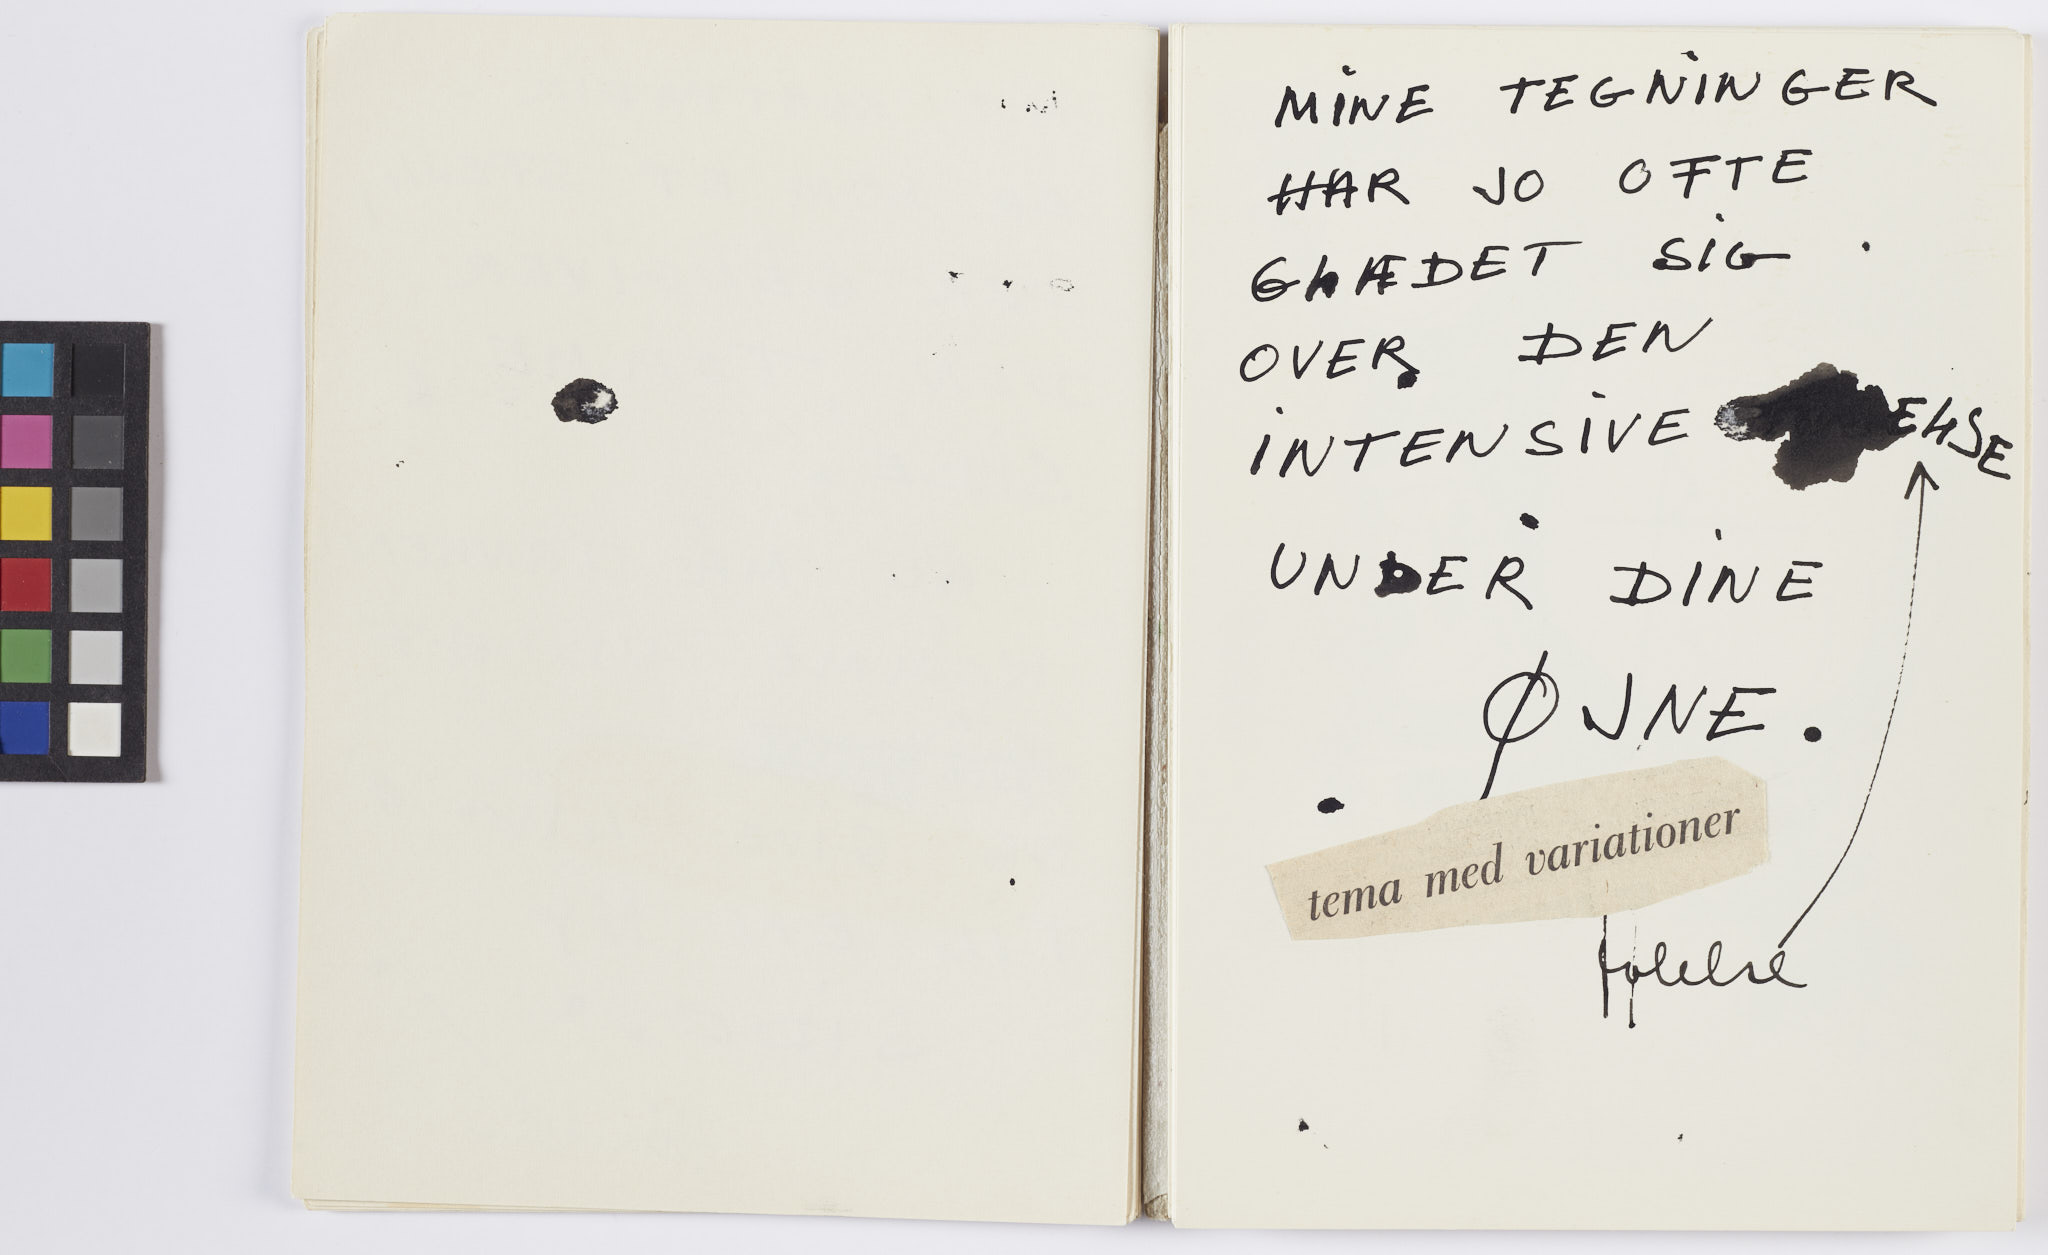 MINE TEGNINGER
HAR JO OFTE
GLÆDET SIG
OVER DEN
INTENSIVE ELSE
UNDER DINE
ØJNE.
tema med variationer
følelse